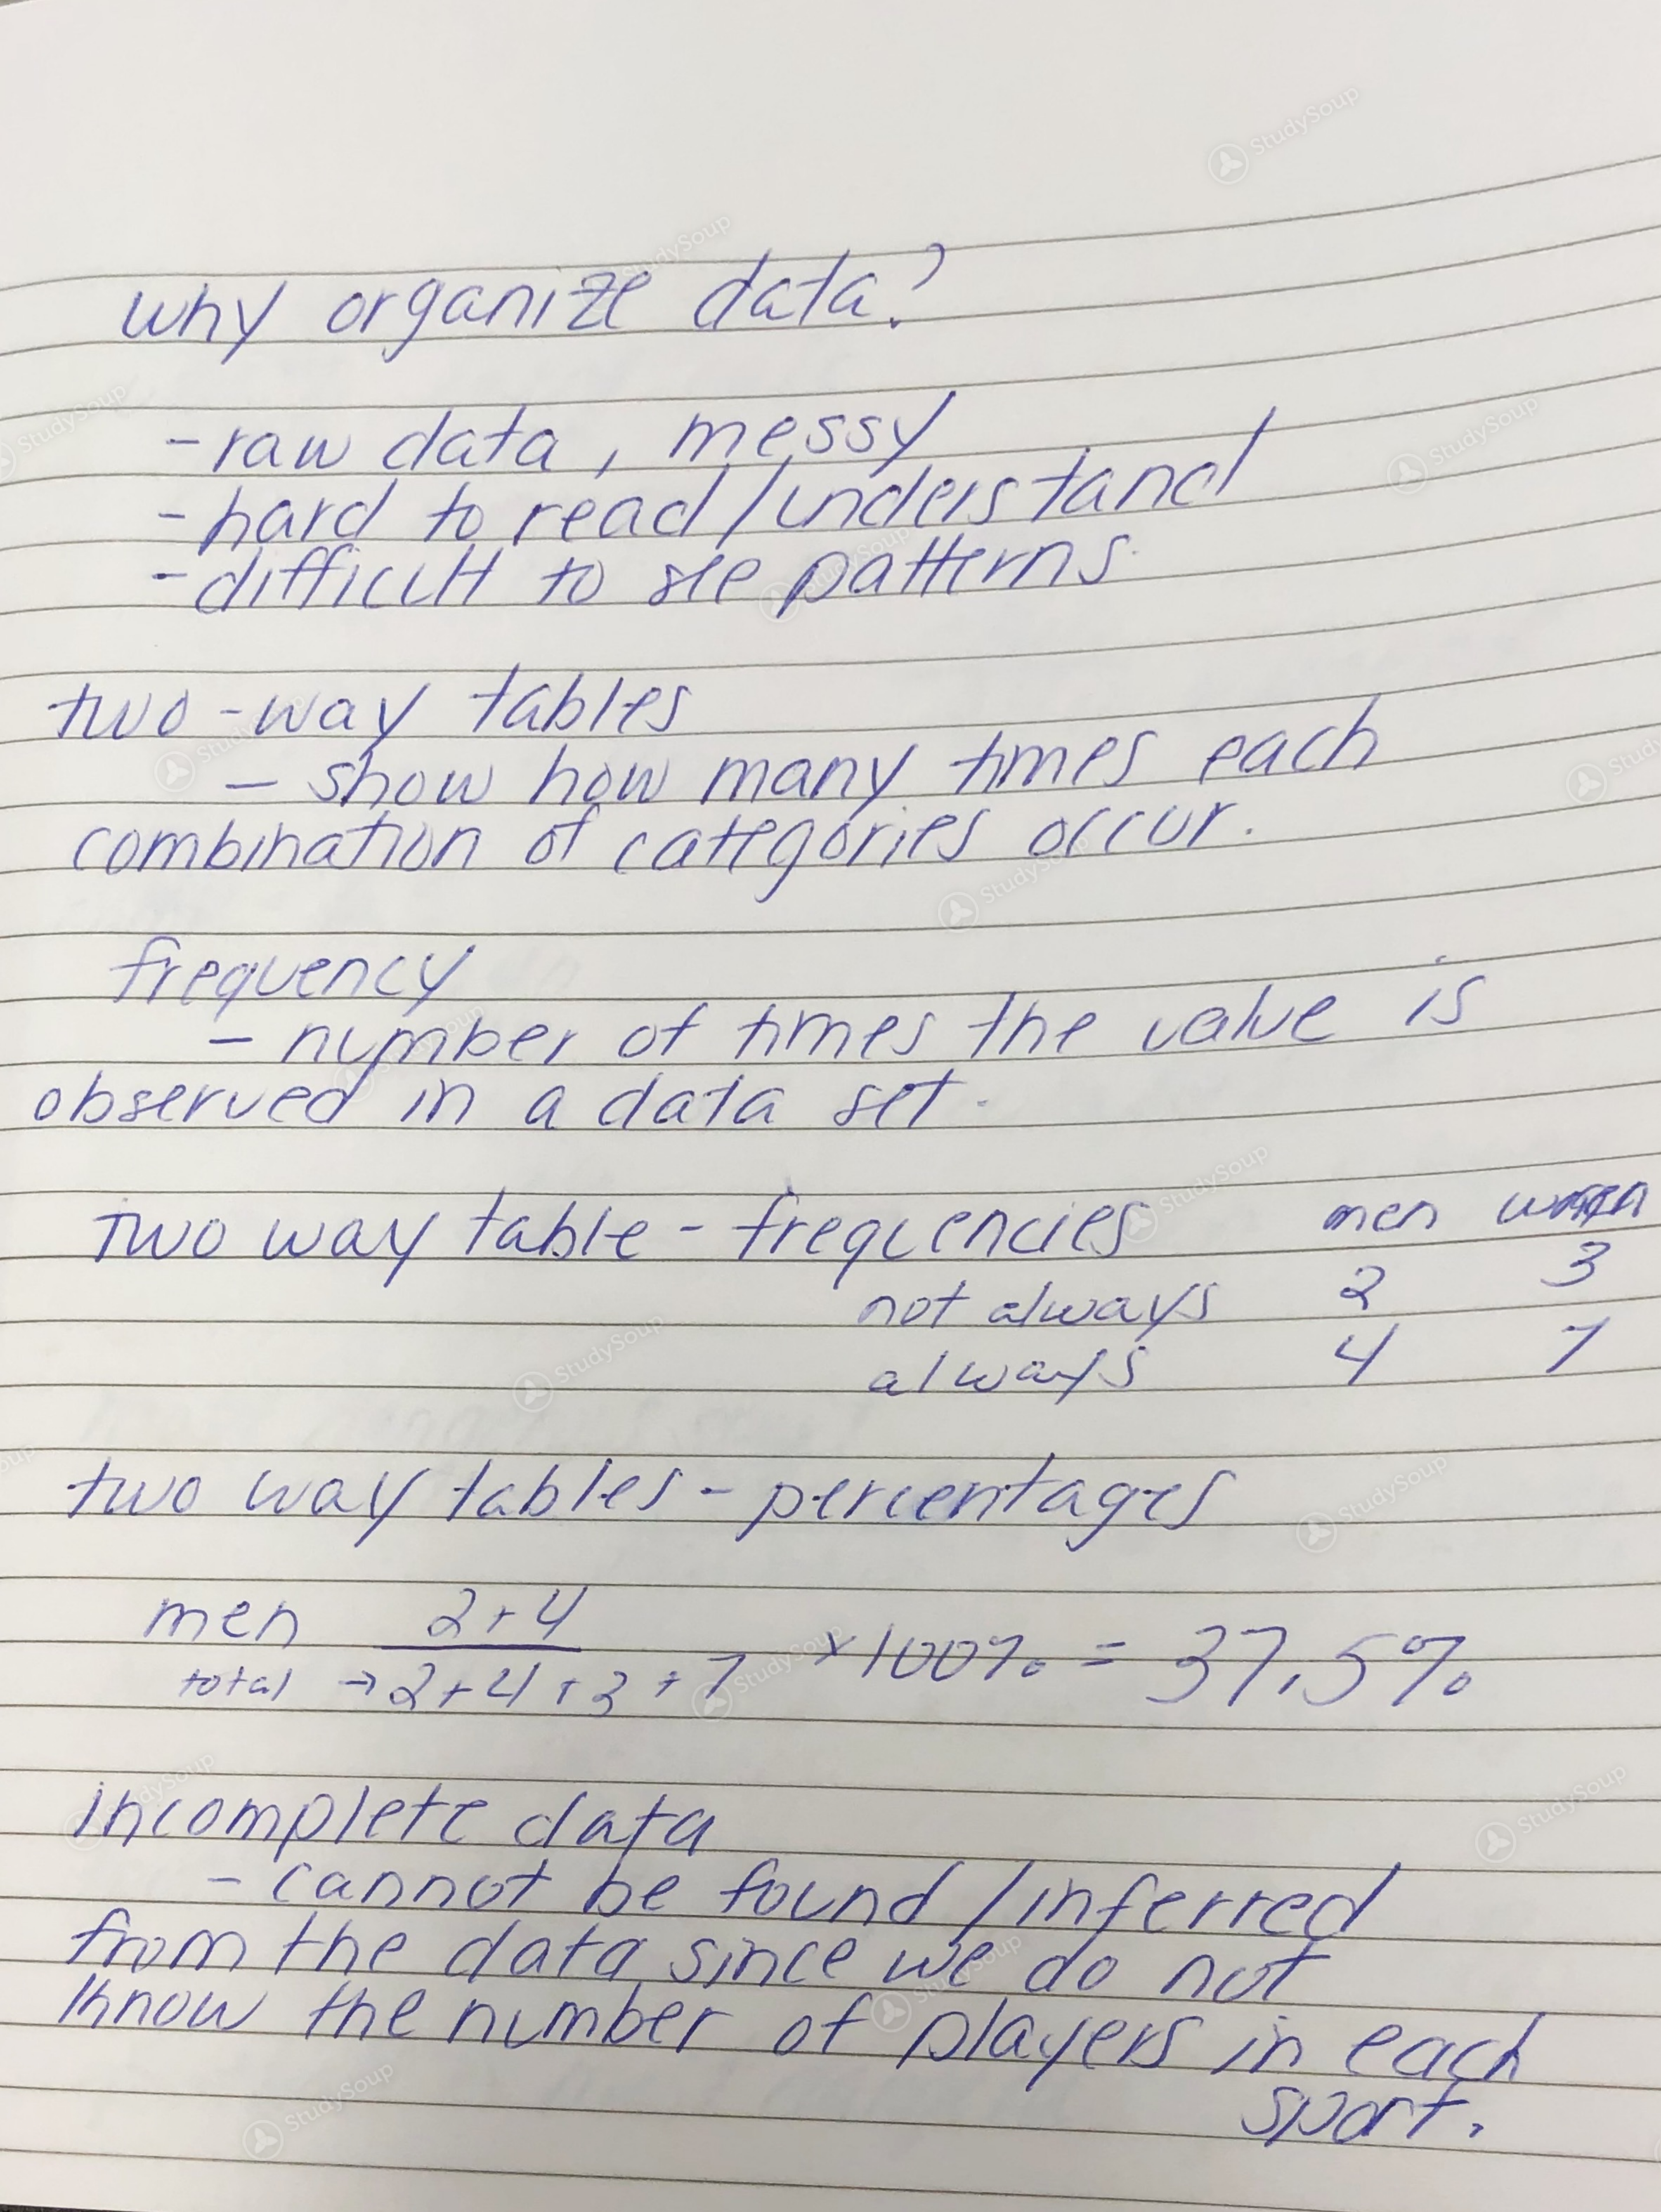 why organize data?
- raw data, messy
- hard to read/understand
- difficult to see patterns.
two-way tables
- show how many times each
combination of categories occur.
frequency
- number of times the value is
observed in a data set.
Two way table - frequencies men women
not always 2 3
always 4 7
two way tables - percentages
men 2+4
total → 2+4+3+7 ×100% = 37.5%
incomplete data
- cannot be found/inferred
from the data since we do not
know the number of players in each
sport.
StudySoup